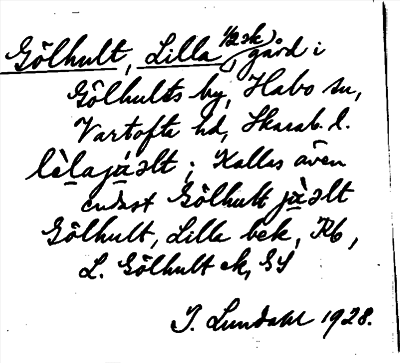 Gölhult, Lilla (1/2 mtl), gård i
Gölhults by, Habo sn,
Vartofta hd, Skarab. l.
lèlajàlt; Kallas även
endast Gölhult jàlt
Gölhult, Lilla bek,
L. Gölhult
I. Lundahl 1928.